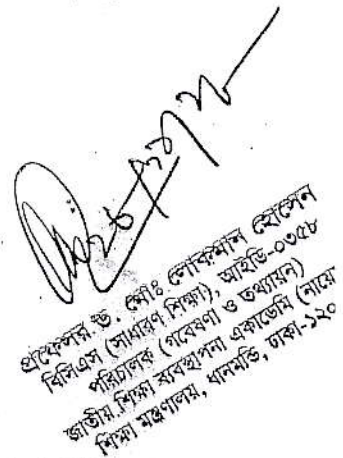 প্রফেসর ড. মোঃ লোকমান হোসেন
বিসিএস (সাধারণ শিক্ষা), আইডি-০৩৫৮
পরিচালক (গবেষণা ও তথ্যায়ন)
জাতীয় শিক্ষা ব্যবস্থাপনা একাডেমি (নায়ে
শিক্ষা মন্ত্রণালয়, ধানমন্ডি, ঢাকা-১২০